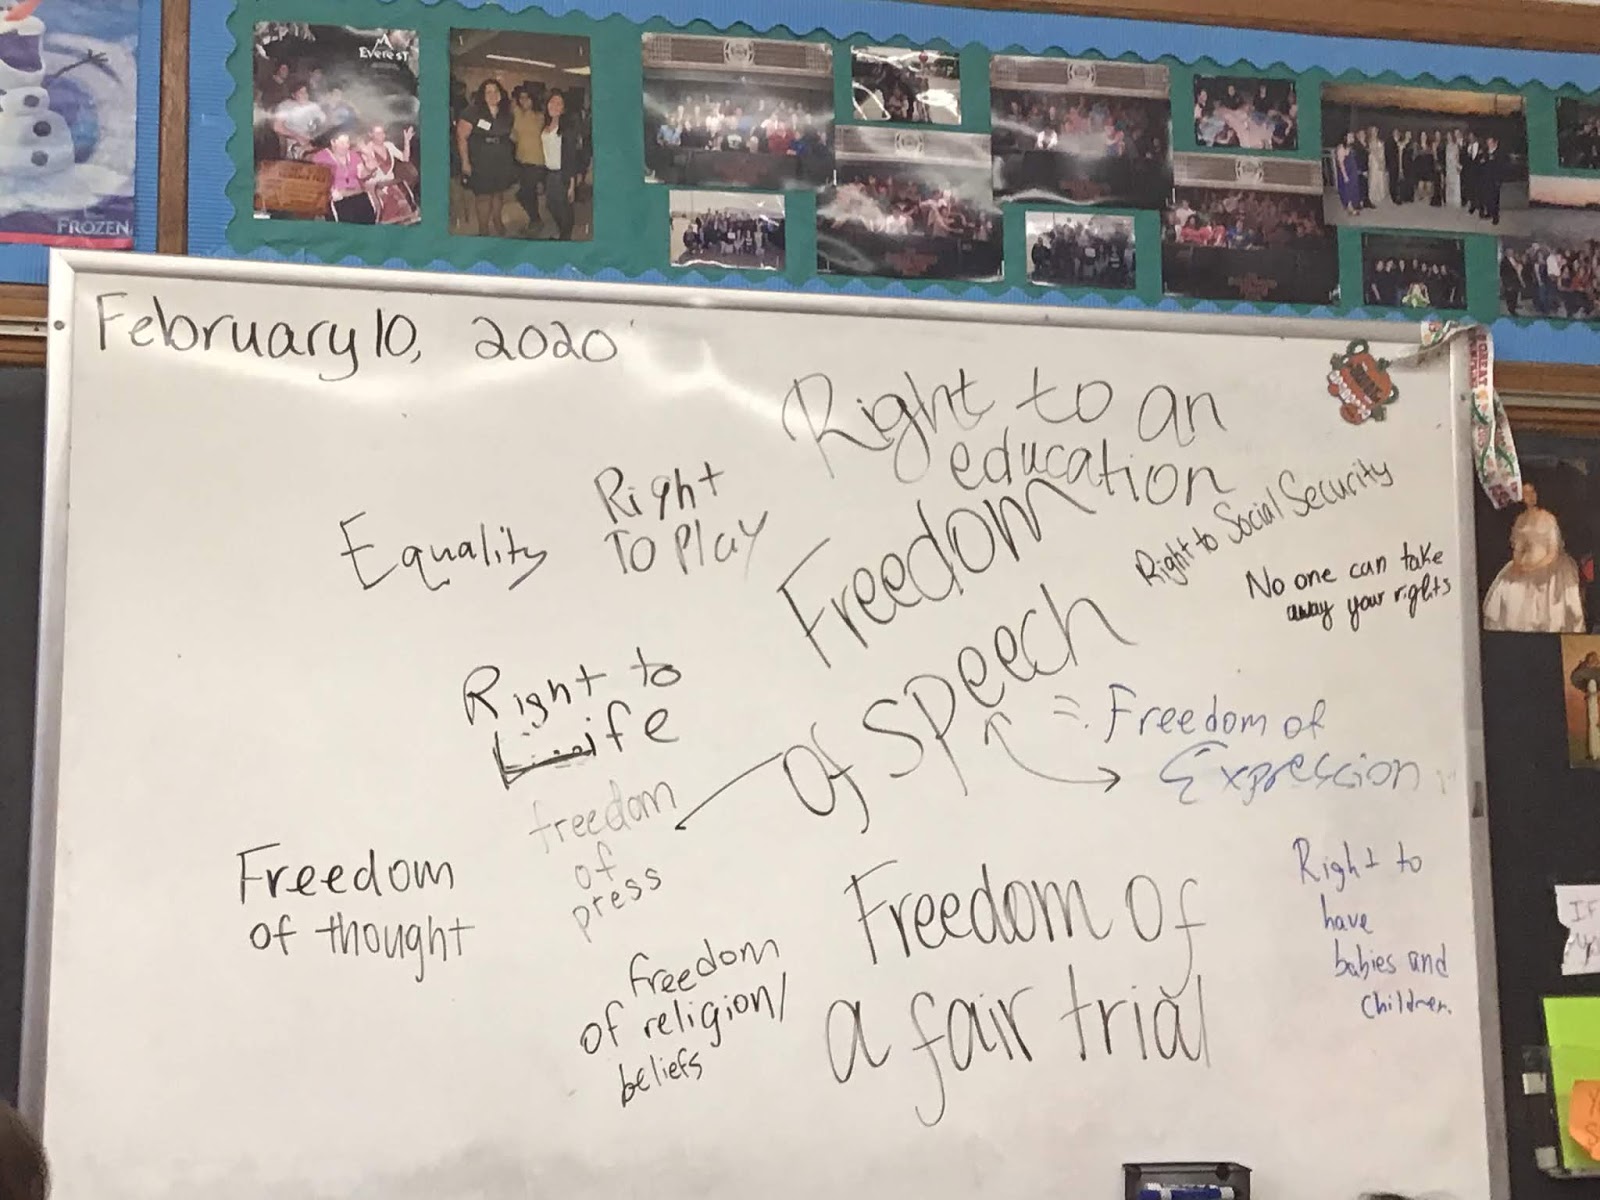 Everest
FROZEN
February 10, 2020
Right to an
education
Equality
Right
To Play
Freedom
of Speech
Right to Social Security
No one can take
away your rights
Right to
Life
= Freedom of
Expression
freedom
of
press
Freedom
of thought
freedom
of religion/
beliefs
Freedom of
a fair trial
Right to
have
babies and
children.
IF